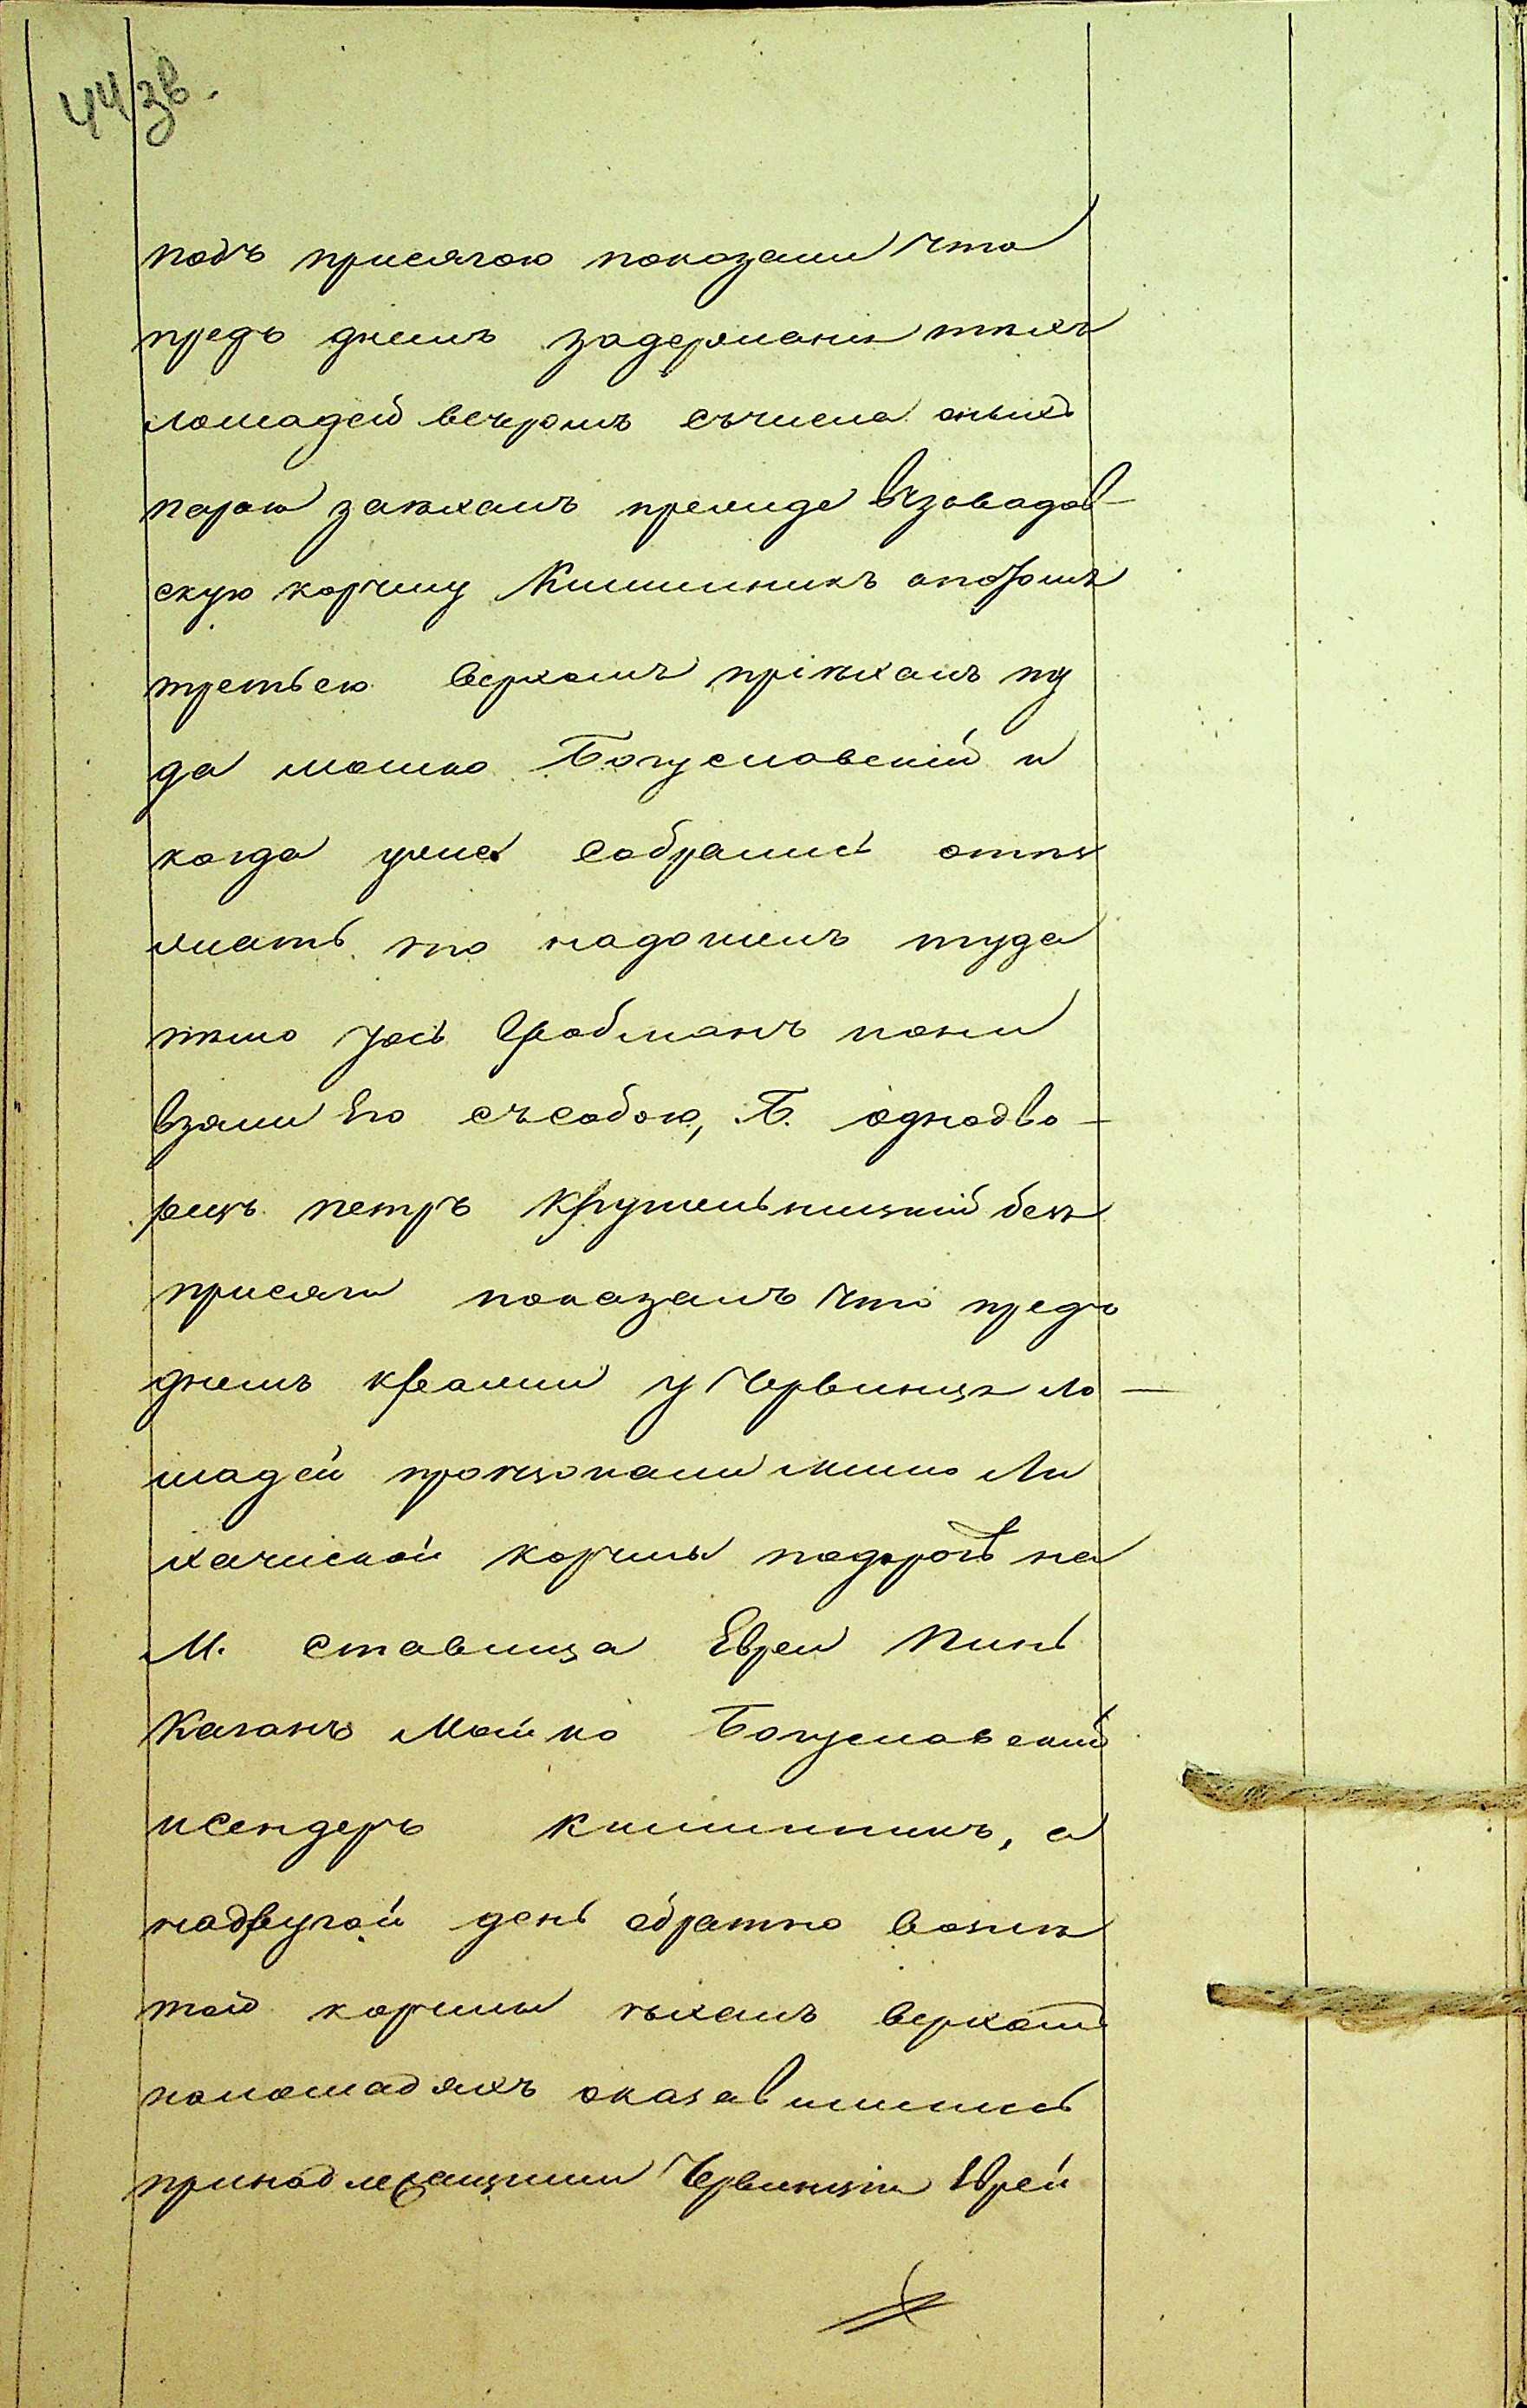 44 зв.
подъ присягою показали что
предъ днемъ задержанія тѣхъ
лошадей вечеромъ съчисла оныхъ
парою заѣхалъ прежде
скую корчму Кишинникъ апотомъ
третьею верхомъ пріѣхалъ ту
да мошко Богуславскій и
когда уже собрались отъѣ
жжать то надошелъ туда
тѣмо Іось Гробманъ иони
взяли Его съсобою, Б. однодво-
рецъ петръ Крушельницкій безъ
присяги показалъ что предъ
днемъ кражи у Червинца ло-
шадей проѣзжали мимо Ли
хачиской корчмы подорогѣ на
М. ставища Евреи Пинь
Каганъ Мошко Богуславскій
исендеръ Кишинникъ, а
надругой день обратно возлѣ
той корчмы ѣхалъ верхомъ
налошадяхъ оказавшимись
принадлежащими Червинцѣи Еврей